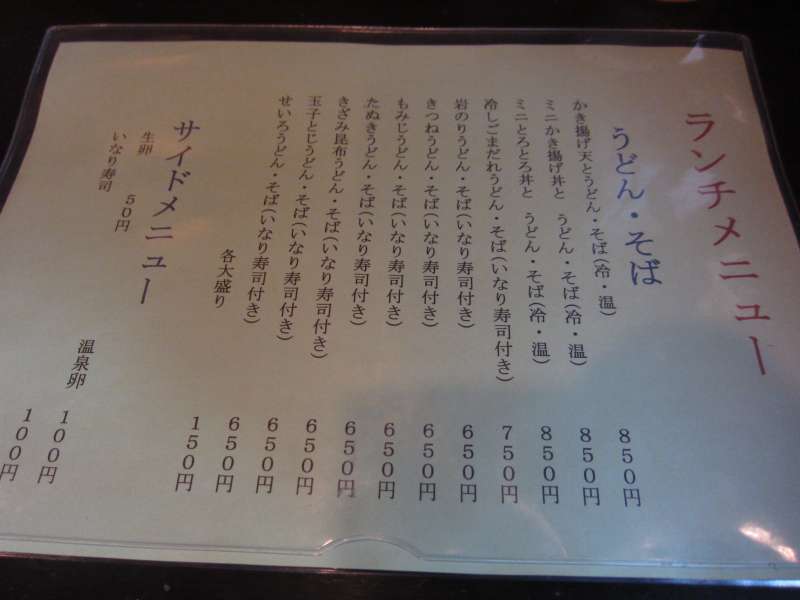 ランチメニュー
うどん・そば
かき揚げ天とうどん・そば(冷・温) 850円
ミニかき揚げ丼と うどん・そば(冷・温) 850円
ミニとろとろ丼と うどん・そば(冷・温) 850円
冷しごまだれうどん・そば(いなり寿司付き) 750円
岩のりうどん・そば(いなり寿司付き) 650円
きつねうどん・そば(いなり寿司付き) 650円
もみじうどん・そば(いなり寿司付き) 650円
たぬきうどん・そば(いなり寿司付き) 650円
きざみ昆布うどん・そば(いなり寿司付き) 650円
玉子とじうどん・そば(いなり寿司付き) 650円
せいろうどん・そば(いなり寿司付き) 650円
各大盛り 150円
サイドメニュー
生卵 50円 温泉卵 100円
いなり寿司 100円